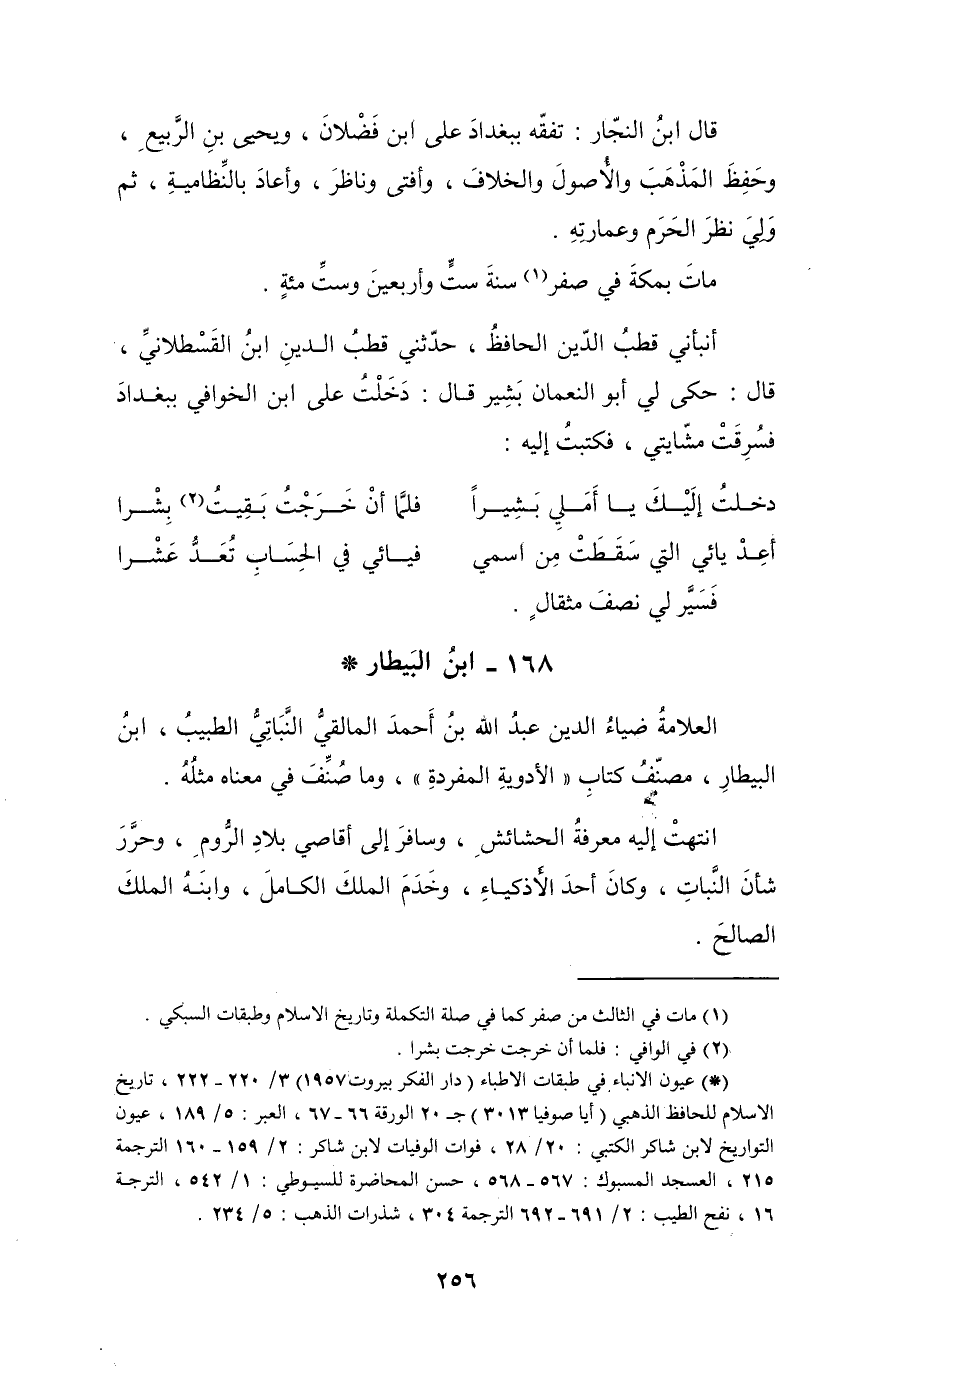 قال ابنُ النجّار : تفقّه ببغدادَ على ابن فَضْلانَ ، ويحيى بنِ الرَّبيعِ ،
وحَفِظَ المَذْهَبَ والأُصولَ والخلافَ ، وأفتى وناظرَ ، وأعادَ بالنِّظاميةِ ، ثم
وَلِيَ نظرَ الحَرَم وعمارتِهِ .
ماتَ بمكةَ في صفر(١) سنةَ ستٍّ وأربعينَ وستِّ مئةٍ .
أنبأني قطبُ الدّين الحافظُ ، حدّثني قطبُ الدينِ ابنُ القَسْطلانيِّ ،
قال : حكى لي أبو النعمان بَشِير قال : دَخَلْتُ على ابن الخوافي ببغدادَ
فسُرِقَتْ مشّايتي ، فكتبتُ إليه :
دخلتُ إلَيْكَ يا أَمَلي بَشِيراً فلمَّا أنْ خَرَجْتُ بَقِيتُ(٢) بِشْرا
أعِدْ يائي التي سَقَطَتْ مِن اسمي فيائي في الحِسَابِ تُعَدُّ عَشْرا
فَسَيَّر لي نصفَ مثقالٍ .
١٦٨ - ابنُ البَيطار *
العلامةُ ضياءُ الدين عبدُ الله بنُ أَحمدَ المالقيُّ النَّبَاتِيُّ الطبيبُ ، ابنُ
البيطارِ ، مصنّفُ كتابِ « الأدويةِ المفردةِ » ، وما صُنِّفَ في معناه مثلُهُ .
انتهتْ إليه معرفةُ الحشائشِ ، وسافرَ إلى أقاصي بلادِ الرُّومِ ، وحرَّرَ
شأنَ النَّباتِ ، وكانَ أحدَ الأَذكياءِ ، وخَدَمَ الملكَ الكاملَ ، وابنَهُ الملكَ
الصالحَ .
(١) مات في الثالث من صفر كما في صلة التكملة وتاريخ الاسلام وطبقات السبكي .
(٢) في الوافي : فلما أن خرجت خرجت بشرا .
(*) عيون الانباء في طبقات الاطباء ( دار الفكر بيروت ١٩٥٧) ٣/ ٢٢٠ - ٢٢٢ ، تاريخ
الاسلام للحافظ الذهبي ( أيا صوفيا ٣٠١٣ ) جـ ٢٠ الورقة ٦٦ - ٦٧ ، العبر : ٥/ ١٨٩ ، عيون
التواريخ لابن شاكر الكتبي : ٢٠/ ٢٨ ، فوات الوفيات لابن شاكر : ٢/ ١٥٩ - ١٦٠ الترجمة
٢١٥ ، العسجد المسبوك : ٥٦٧ - ٥٦٨ ، حسن المحاضرة للسيوطي : ١/ ٥٤٢ ، الترجمة
١٦ ، نفح الطيب : ٢/ ٦٩١ - ٦٩٢ الترجمة ٣٠٤ ، شذرات الذهب : ٥/ ٢٣٤ .
٢٥٦